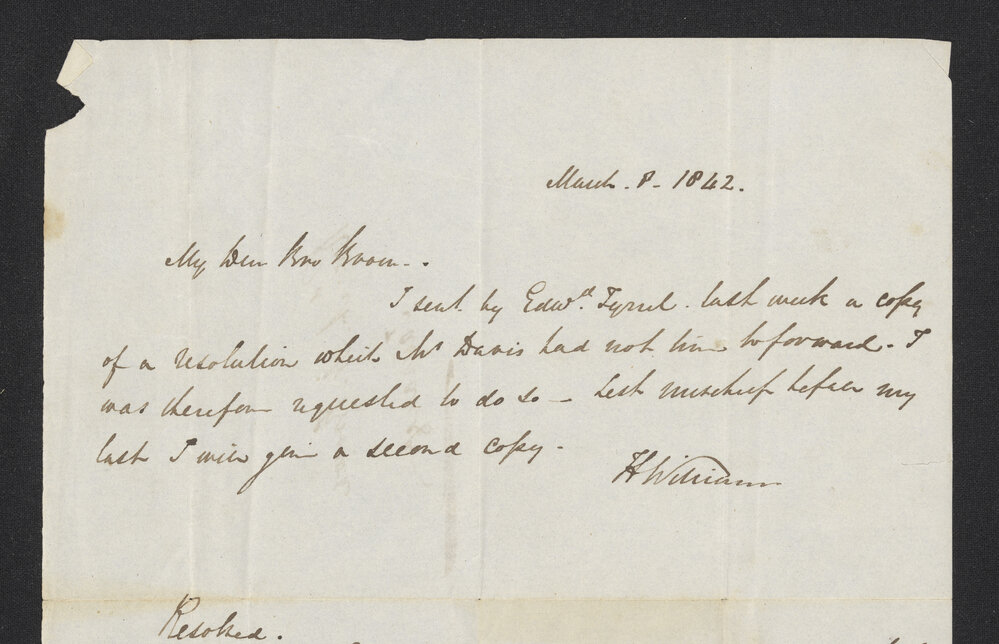 March. 8 - 1842.
My Dear Bro Brown - .
I sent by Edwd. Tyrrel. last week a copy
of a resolution which Mr Davis had not time to forward - I
was therefore requested to do so - Lest mischief befall my
last I will give a second copy -
H Williams
Resolved.